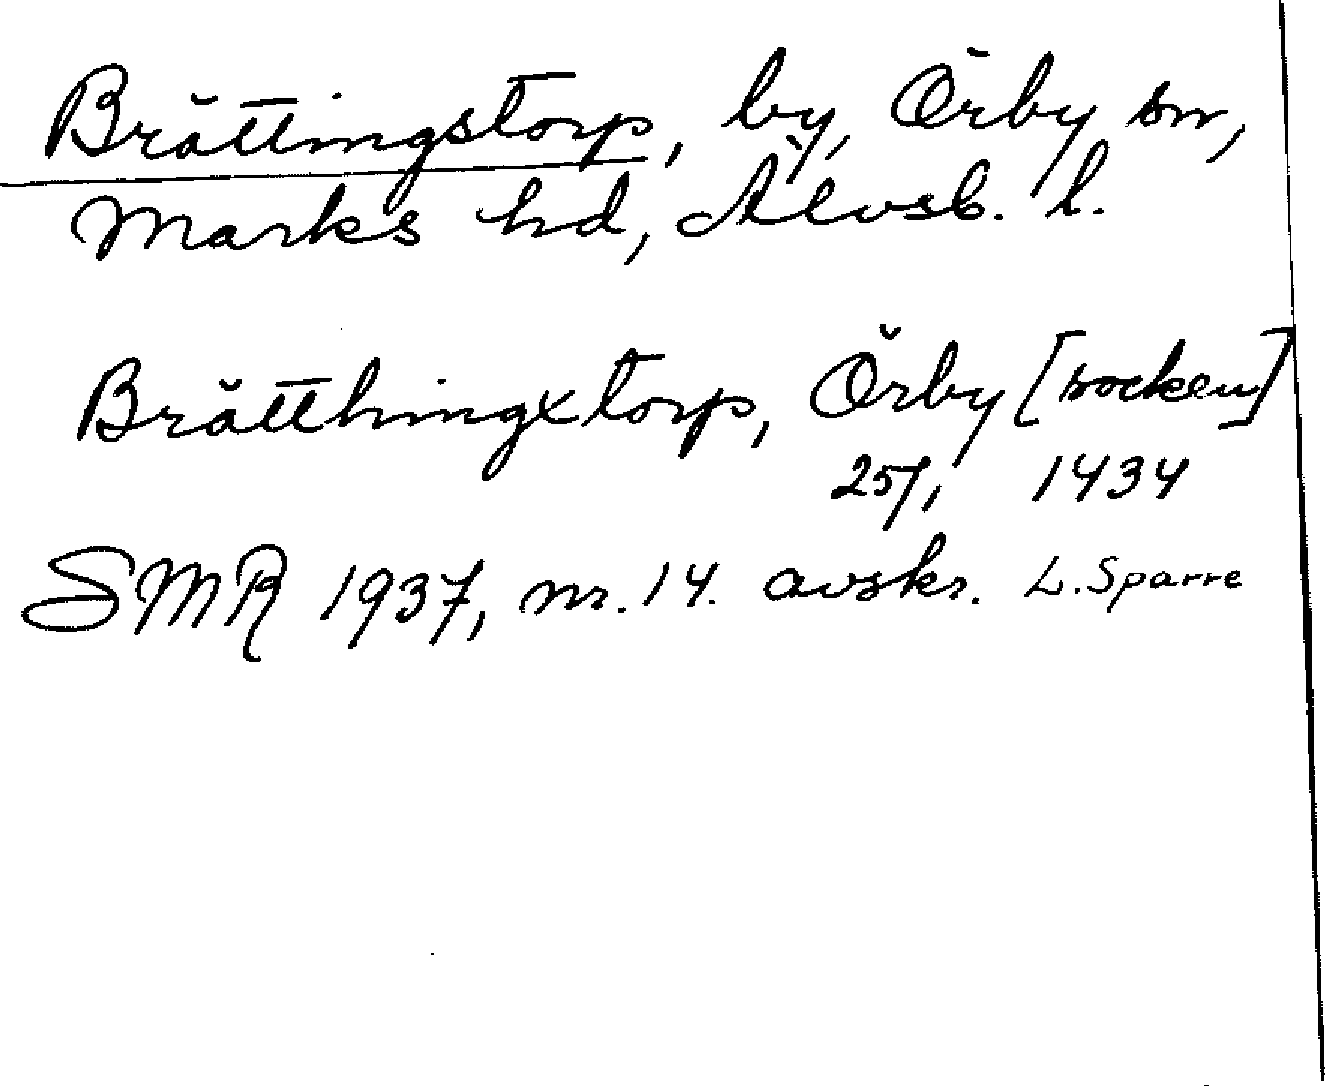 Brättingstorp, by, Örby sn,
Marks hd, Älvsb. l.
Brätthingxtorp, Örby [socken]
25/1 1434
SMR 1937, nr. 14. avskr. L. Sparre